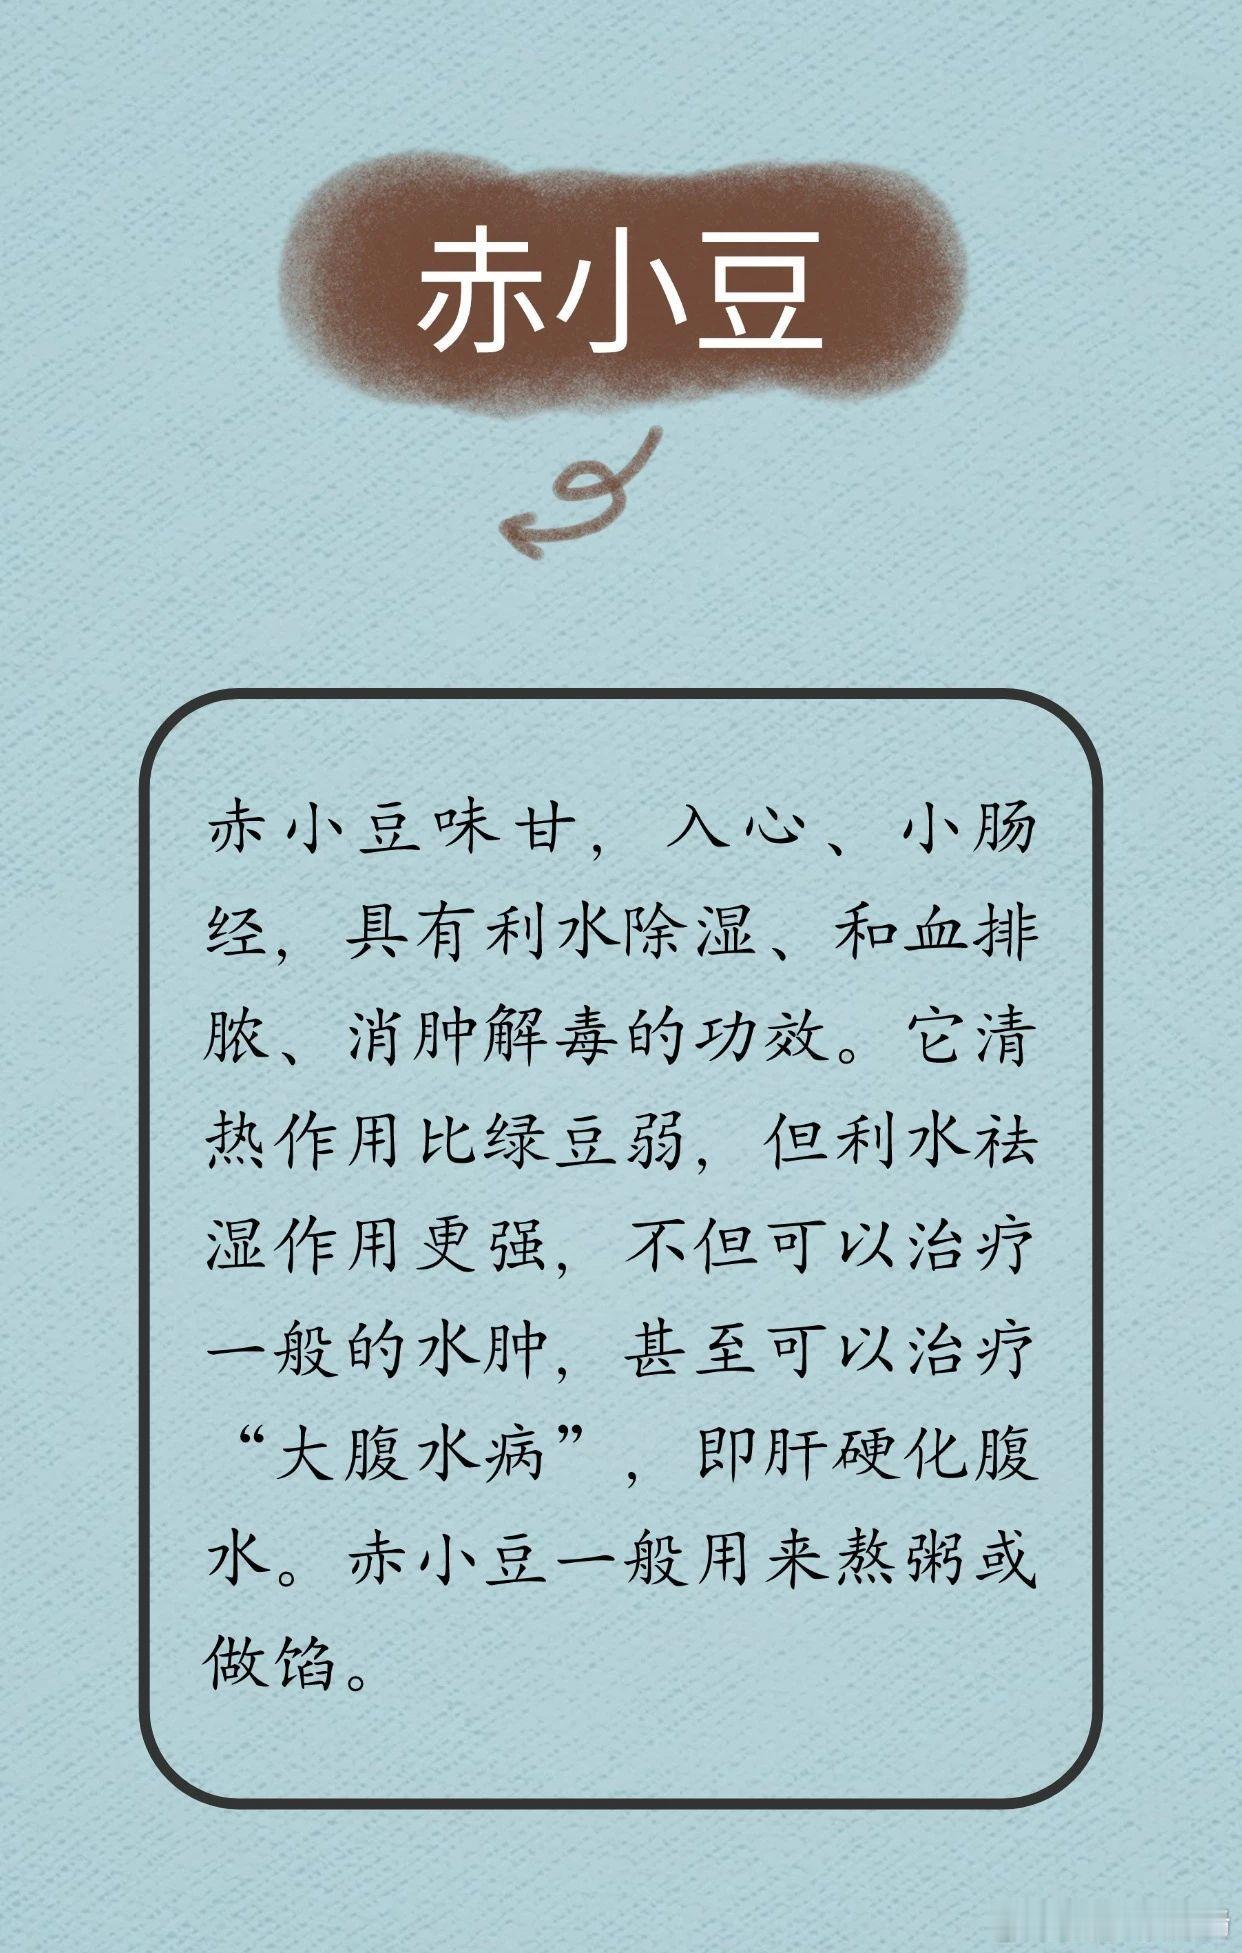 赤小豆
赤小豆味甘，入心、小肠
经，具有利水除湿、和血排
脓、消肿解毒的功效。它清
热作用比绿豆弱，但利水祛
湿作用更强，不但可以治疗
一般的水肿，甚至可以治疗
“大腹水病”，即肝硬化腹
水。赤小豆一般用来熬粥或
做馅。